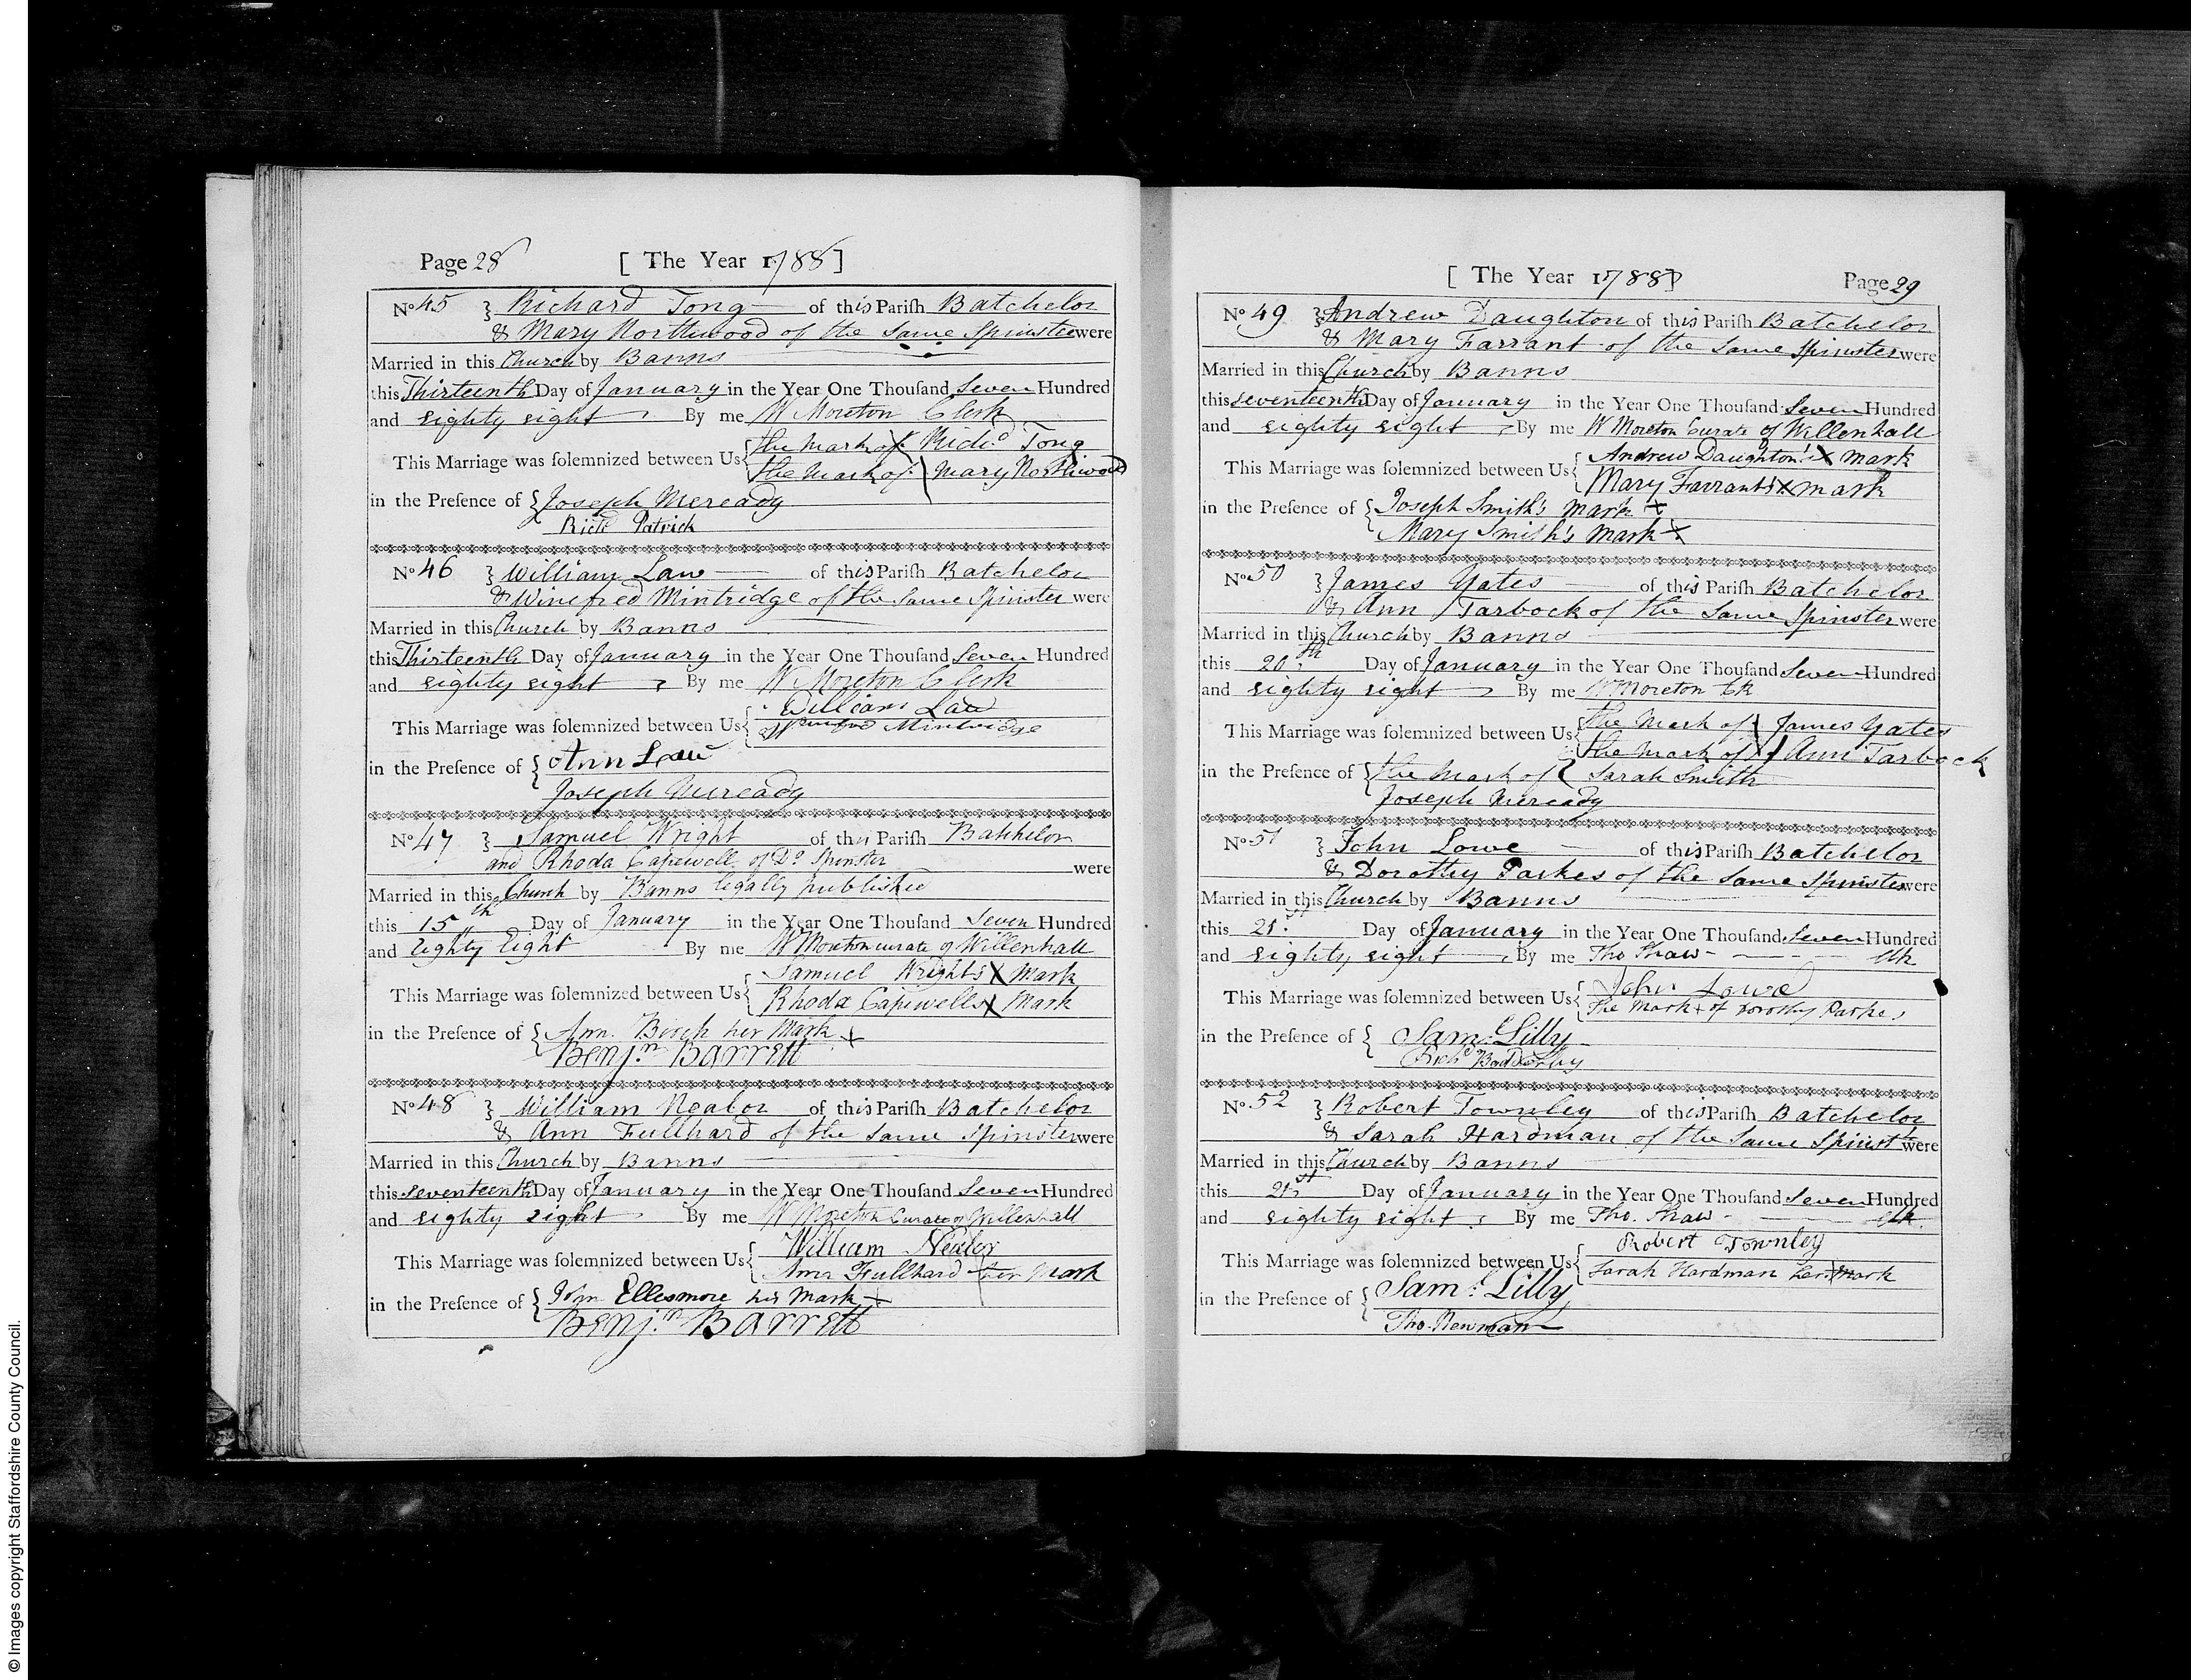 Page 28 [ The Year 1788 ]
No 45 } Richard Tong of this Parish Batchelor
& Mary Northwood of the Same Spinster were
Married in this Church by Banns
this Thirteenth Day of January in the Year One Thousand Seven Hundred
and eighty eight By me W Moreton Clerk
This Marriage was solemnized between Us { the Mark of X Richd Tong
the Mark of \ Mary Northwood
in the Presence of { Joseph Mcready
Richd Patrick
No 46 } William Law of this Parish Batchelor
& Winefred Mintridge of the Same Spinster were
Married in this Church by Banns
this Thirteenth Day of January in the Year One Thousand Seven Hundred
and eighty eight By me W Moreton Clerk
This Marriage was solemnized between Us { William Law
Winefred Mintridge
in the Presence of { Ann Law
Joseph Mcready
No 47 } Samuel Wright of this Parish Batchelor
and Rhoda Capewell of Do Spinster were
Married in this Church by Banns legally published
this 15th Day of January in the Year One Thousand Seven Hundred
and Eighty Eight By me W Moreton curate of Willenhall
This Marriage was solemnized between Us { Samuel Wright's X Mark
Rhoda Capewells X Mark
in the Presence of { Ann Birch her Mark +
Benj.n Barrett
No 48 } William Nealor of this Parish Batchelor
& Ann Fullhard of the Same Spinster were
Married in this Church by Banns
this seventeenth Day of January in the Year One Thousand Seven Hundred
and eighty eight By me W Moreton Curate of Willenhall
This Marriage was solemnized between Us { William Nealor
Ann Fullhard + her Mark
in the Presence of { John Ellesmore his Mark +
Benj.n Barrett
[ The Year 1788 ] Page 29
No 49 } Andrew Daughton of this Parish Batchelor
& Mary Farrant of the Same Spinster were
Married in this Church by Banns
this seventeenth Day of January in the Year One Thousand Seven Hundred
and eighty eight By me W Moreton Curate of Willenhall
This Marriage was solemnized between Us { Andrew Daughton's X Mark
Mary Farrant's X mark
in the Presence of { Joseph Smith's Mark X
Mary Smith's Mark X
No 50 } James Yates of this Parish Batchelor
& Ann Tarbock of the Same Spinster were
Married in this Church by Banns
this 20th Day of January in the Year One Thousand Seven Hundred
and eighty eight By me W Moreton Ck
This Marriage was solemnized between Us { the Mark of \ James Yates
the Mark of / Ann Tarbock
in the Presence of { the Mark of ( Sarah Smith
Joseph Mcready
No 51 } John Lowe of this Parish Batchelor
& Dorothy Parkes of the Same Spinster were
Married in this Church by Banns
this 21st Day of January in the Year One Thousand Seven Hundred
and eighty eight By me Tho Shaw Clk
This Marriage was solemnized between Us { John Lowe
The Mark + of Dorothy Parkes
in the Presence of { Saml Lilly
Richd Badderley
No 52 } Robert Townley of this Parish Batchelor
& Sarah Hardman of the Same Spinstr were
Married in this Church by Banns
this 21st Day of January in the Year One Thousand Seven Hundred
and eighty eight By me Tho. Shaw Clk
This Marriage was solemnized between Us { Robert Townley
Sarah Hardman her X Mark
in the Presence of { Saml Lilly
Tho. Newman
© Images copyright Staffordshire County Council.